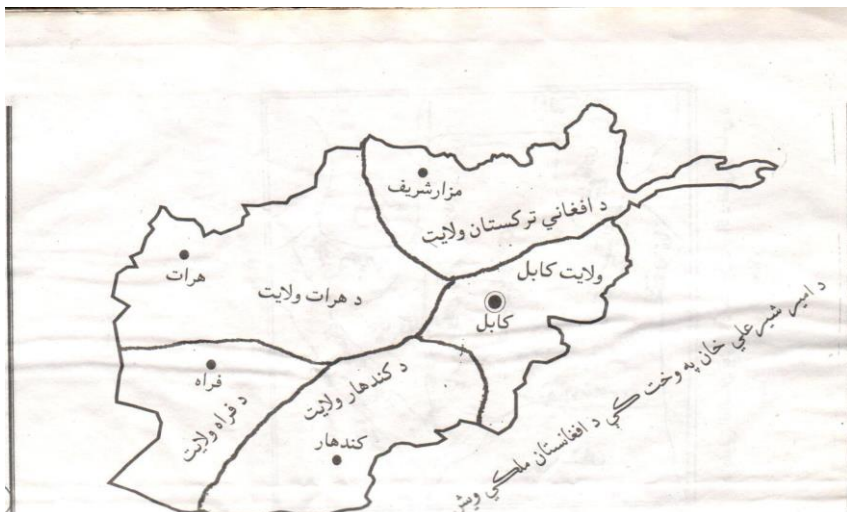 مزارشريف
د افغاني تركستان ولايت
هرات
د هرات ولايت
ولايت كابل
كابل
فراه
د فراه ولايت
د كندهار ولايت
كندهار
د امير شير علي خان په وخت كي د افغانستان ملكي